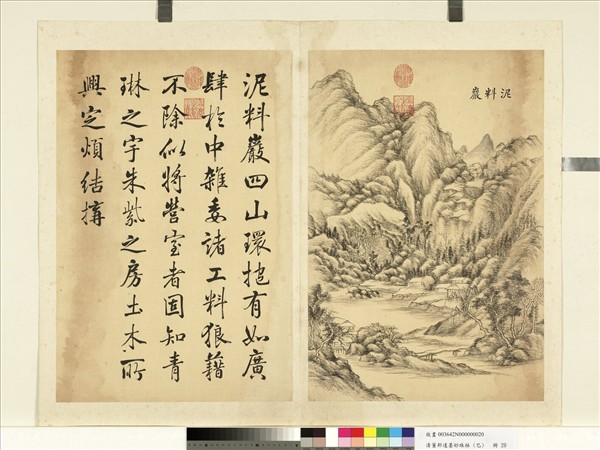 泥料巖
泥料巖四山環抱有如廣
肆於中雜委諸工料狼藉
不除似將營室者固知青
琳之宇朱紫之房土木所
興定煩結搆
故畫 003642N000000020
清董邦達墨妙珠林（巳） 冊 20